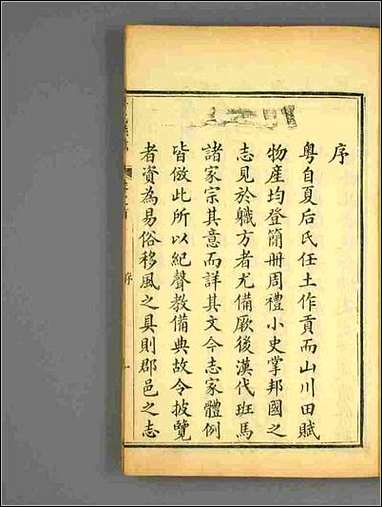 序
粵自夏后氏任土作貢而山川田賦
物産均登簡冊周禮小史掌邦國之
志見於軄方者尤備厥後漢代班馬
諸家宗其意而詳其文今志家體例
皆倣此所以紀聲教備典故令披覽
者資為易俗移風之具則郡邑之志
序
一